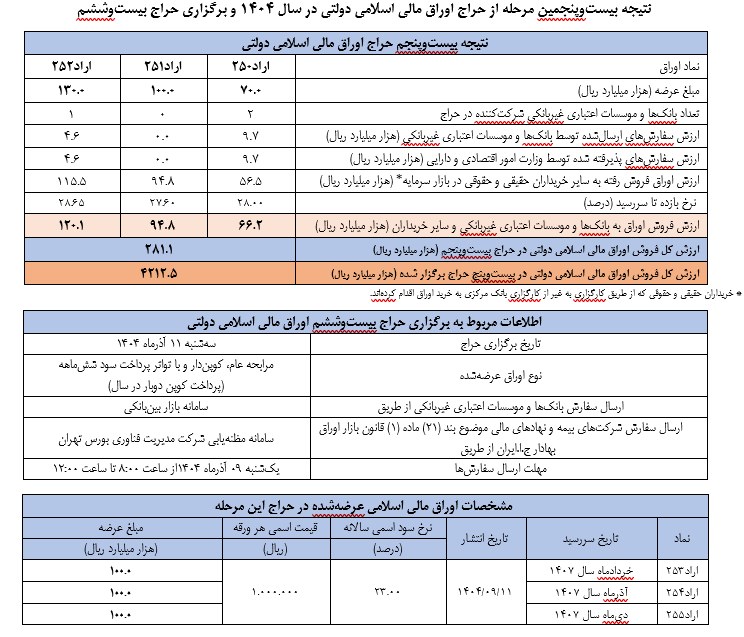 نتیجه بیست‌وپنجمین مرحله از حراج اوراق مالی اسلامی دولتی در سال ۱۴۰۴ و برگزاری حراج بیست‌وششم
نتیجه بیست‌وپنجم حراج اوراق مالی اسلامی دولتی
نماد اوراق اراد۲۵۰ اراد۲۵۱ اراد۲۵۲
مبلغ عرضه (هزار میلیارد ریال) ۷۰.۰ ۱۰۰.۰ ۱۳۰.۰
تعداد بانک‌ها و موسسات اعتباری غیربانکی شرکت‌کننده در حراج ۲ ۰ ۱
ارزش سفارش‌های ارسال‌شده توسط بانک‌ها و موسسات اعتباری غیربانکی (هزار میلیارد ریال) ۹.۷ ۰.۰ ۴.۶
ارزش سفارش‌های پذیرفته شده توسط وزارت امور اقتصادی و دارایی (هزار میلیارد ریال) ۹.۷ ۰.۰ ۴.۶
ارزش اوراق فروش رفته به سایر خریداران حقیقی و حقوقی در بازار سرمایه* (هزار میلیارد ریال) ۵۶.۵ ۹۴.۸ ۱۱۵.۵
نرخ بازده تا سررسید (درصد) ۲۸.۰۰ ۲۷۶۰ ۲۸۶۵
ارزش فروش اوراق به بانک‌ها و موسسات اعتباری غیربانکی و سایر خریداران (هزار میلیارد ریال) ۶۶.۲ ۹۴.۸ ۱۲۰.۱
ارزش کل فروش اوراق مالی اسلامی دولتی در حراج بیست‌وپنجم (هزار میلیارد ریال) ۲۸۱.۱
ارزش کل فروش اوراق مالی اسلامی دولتی در بیست‌وپنج حراج برگزار شده (هزار میلیارد ریال) ۴۲۱۲.۵
* خریداران حقیقی و حقوقی که از طریق کارگزاری به غیر از کارگزاری بانک مرکزی به خرید اوراق اقدام کرده‌اند.
اطلاعات مربوط به برگزاری حراج بیست‌وششم اوراق مالی اسلامی دولتی
تاریخ برگزاری حراج سه‌شنبه ۱۱ آذرماه ۱۴۰۴
نوع اوراق عرضه‌شده مرابحه عام، کوپن‌دار و با تواتر پرداخت سود شش‌ماهه
(پرداخت کوپن دوبار در سال)
ارسال سفارش بانک‌ها و موسسات اعتباری غیربانکی از طریق سامانه بازار بین‌بانکی
ارسال سفارش شرکت‌های بیمه و نهادهای مالی موضوع بند (۲۱) ماده (۱) قانون بازار اوراق
بهادار ج.ا.ایران از طریق سامانه مظنه‌یابی شرکت مدیریت فناوری بورس تهران
مهلت ارسال سفارش‌ها یک‌شنبه ۰۹ آذرماه ۱۴۰۴از ساعت ۸:۰۰ تا ساعت ۱۲:۰۰
مشخصات اوراق مالی اسلامی عرضه‌شده در حراج این مرحله
نماد تاریخ سررسید تاریخ انتشار نرخ سود اسمی سالانه قیمت اسمی هر ورقه مبلغ عرضه
(درصد) (ریال) (هزار میلیارد ریال)
اراد۲۵۳ خردادماه سال ۱۴۰۷ ۱۰۰.۰
اراد۲۵۴ آذرماه سال ۱۴۰۷ ۱۴۰۴/۰۹/۱۱ ۲۳.۰۰ ۱.۰۰۰.۰۰۰ ۱۰۰.۰
اراد۲۵۵ دی‌ماه سال ۱۴۰۷ ۱۰۰.۰